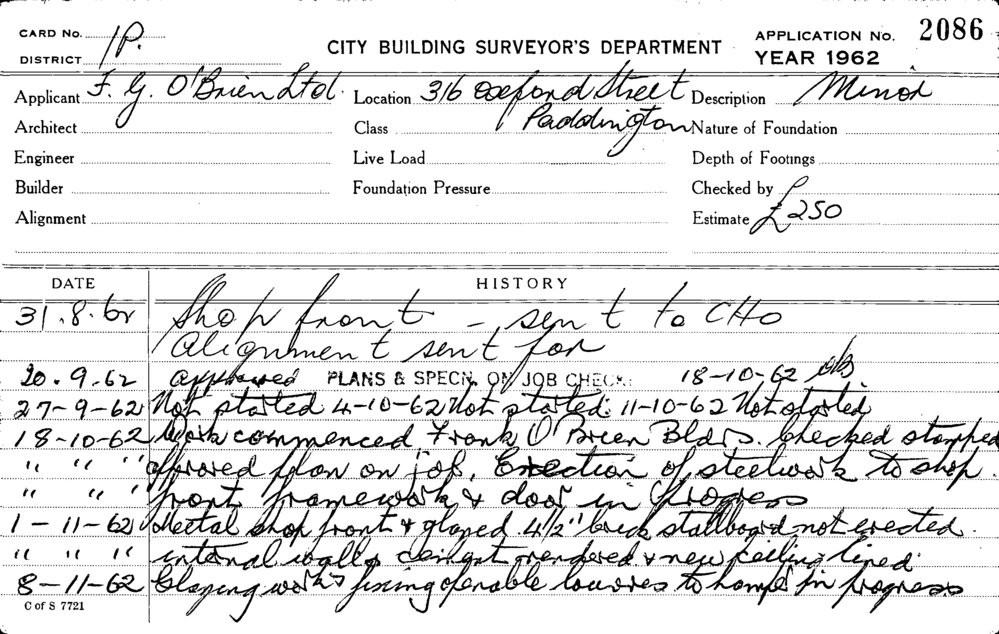 CARD No. 1P.
DISTRICT
CITY BUILDING SURVEYOR'S DEPARTMENT
APPLICATION No. 2086
YEAR 1962
Applicant F. G. O'Brien Ltd. Location 316 Oxford Street Description Minor
Architect Class Paddington Nature of Foundation
Engineer Live Load Depth of Footings
Builder Foundation Pressure Checked by
Alignment Estimate £250
DATE HISTORY
31.8.62 Shop front - sent to CHO
Alignment sent for
20.9.62 Approved PLANS & SPECN. ON JOB CHECK. 18-10-62
27-9-62 Not started 4-10-62 Not started. 11-10-62 Not started
18-10-62 Work commenced Frank O'Brien Bldrs. Checked stamped
" " " approved plan on job. Erection of steelwork to shop.
" " " front framework & door in progress
1-11-62 Mectal shop front & glazed 4½" brick stallboard not erected.
" " " internal walls cement rendered & new ceiling lined
8-11-62 Glazing works fixing operable louvres to in progress
C of S 7721